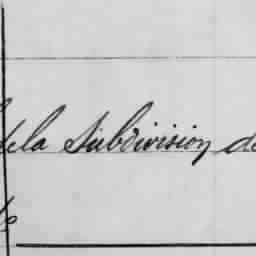 de la Subdivision de